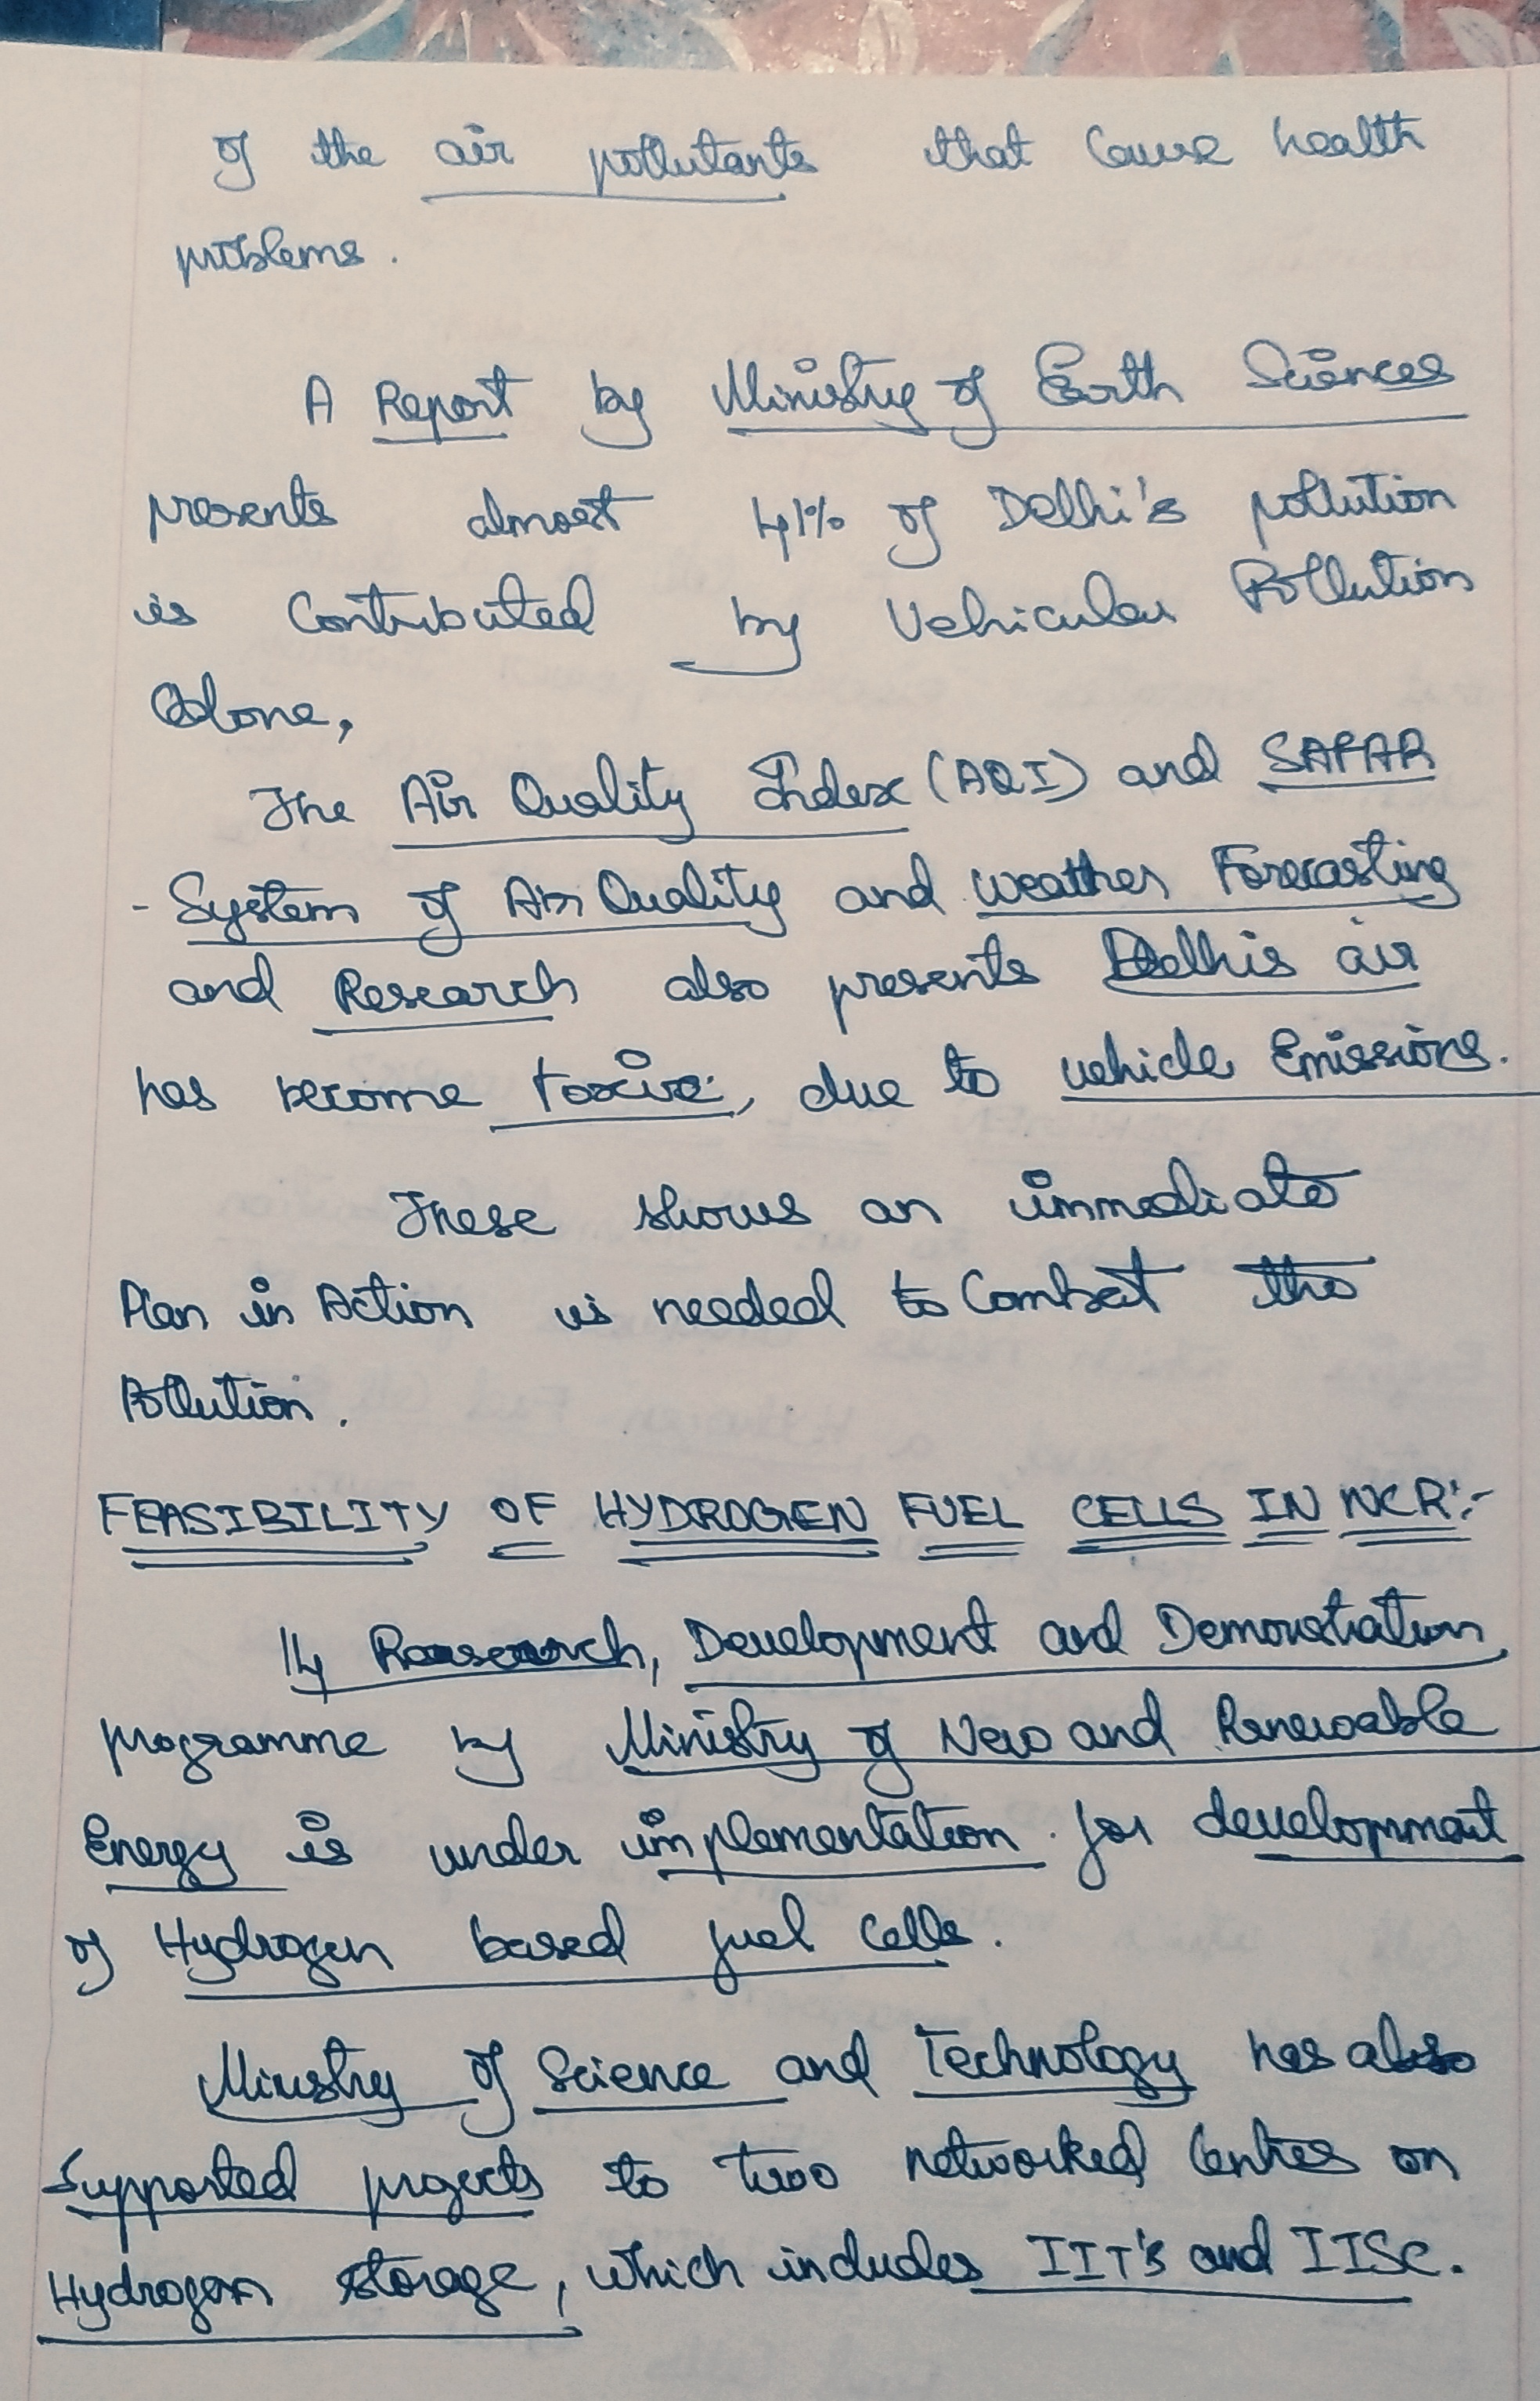 of the air pollutants that cause health
problems.
A Report by Ministry of Earth Sciences
presents almost 41% of Delhi's pollution
is Contributed by Vehicular Pollution
Alone,
The Air Quality Index (AQI) and SAFAR
- System of Air Quality and weather Forecasting
and Research also presents Delhis air
has become toxic, due to vehicle Emissions.
These shows an immediate
Plan in Action is needed to Combat the
Pollution.
FEASIBILITY OF HYDROGEN FUEL CELLS IN NCR:-
14 Research, Development and Demonstration
programme by Ministry of New and Renewable
Energy is under implementation for development
of Hydrogen based fuel cells.
Ministry of Science and Technology has also
Supported projects to two networked Centres on
Hydrogen storage, which includes IIT's and IISc.